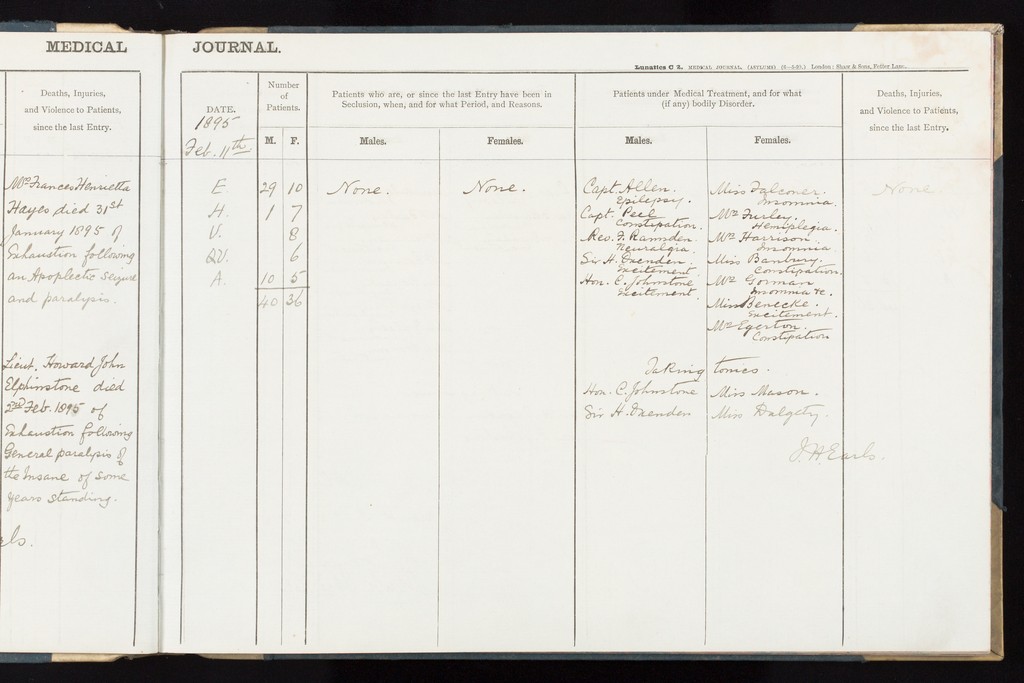 MEDICAL
Deaths, Injuries,
and Violence to Patients,
since the last Entry.
Mrs Frances Henrietta
Hayes died 31st
January 1895 of
Exhaustion following
an Apoplectic Seizure
and paralysis.
Lieut. Howard John
Elphinstone died
2nd Feb. 1895 of
Exhaustion following
General paralysis of
the Insane of some
years standing.
JOURNAL.
Lunatics C 2. MEDICAL JOURNAL. (ASYLUMS) London: Shaw & Sons, Fetter Lane.
DATE.
1895
Feb. 11th.
Number
of
Patients.
M. F.
Patients who are, or since the last Entry have been in
Seclusion, when, and for what Period, and Reasons.
Males. Females.
Patients under Medical Treatment, and for what
(if any) bodily Disorder.
Males. Females.
Deaths, Injuries,
and Violence to Patients,
since the last Entry.
E 29 10
H. 1 7
V. 8
QV. 6
A. 10 5
40 36
None. None.
Capt. Allen.
Epilepsy.
Capt. Peel
Constipation.
Rev. F. Ramsden.
Neuralgia.
Sir H. Oxenden.
Excitement.
Hon. C. Johnstone
Excitement.
Miss Falconer.
Insomnia.
Mrs Furley.
Hemiplegia.
Mrs Harrison
Insomnia
Miss Banbury.
Constipation.
Mrs Gorman
Insomnia &c.
Miss Benecke.
Excitement.
Mrs Egerton.
Constipation
None
Taking tonics.
Hon. C. Johnstone Miss Mason.
Sir H. Oxenden Miss Dalgety.
J. H. Earls.